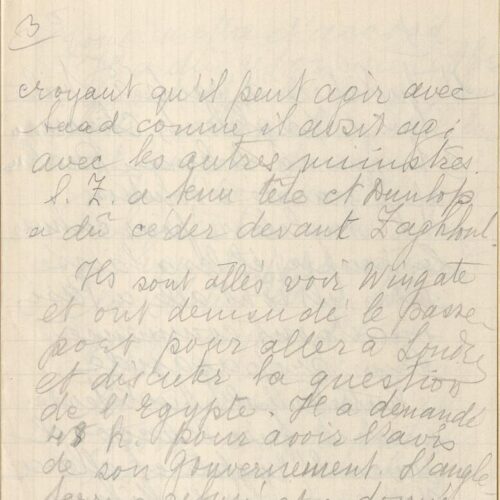 3
croyant qu'il peut agir avec
Saad comme il avait agi
avec les autres ministres.
S. Z. a tenu tête et Dunlop
a dû ceder devant Zaghloul.
Ils sont allés voir Wingate
et ont demandé le passe
port pour aller à Londres
et discuter la question
de l'Egypte. Il a demandé
48 h. pour avoir l'avis
de son gouvernement. L'angle